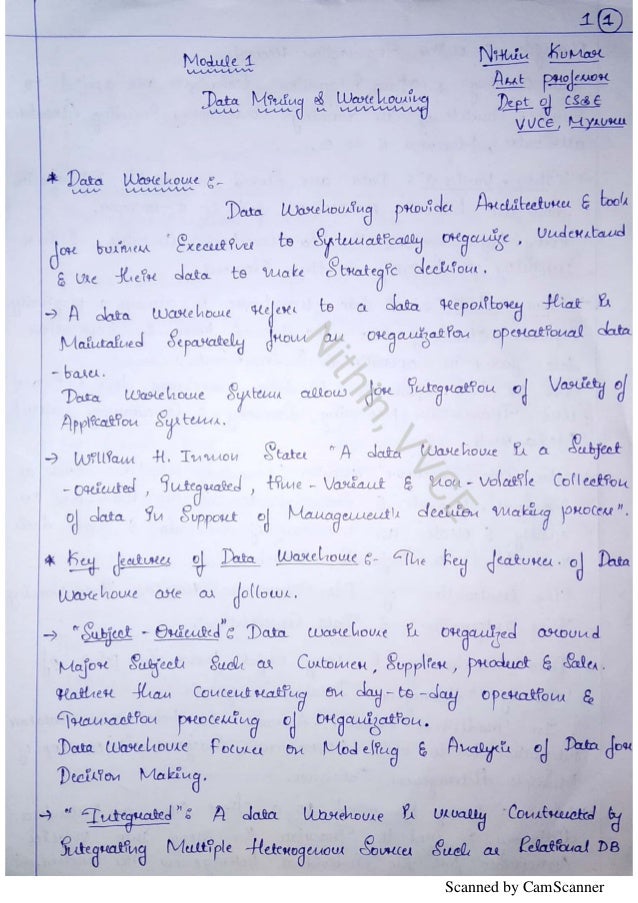 1 1
Module 1
Nithin Kumar
Asst professor
Data Mining & Warehousing
Dept of CS&E
VVCE, Mysuru
* Data Warehouse :-
Data Warehousing provides Architectures & tools
for business Executives to Systematically organize, Understand
& use their data to make Strategic decisions.
→ A data warehouse refers to a data repository that is
Maintained Separately from an organization operational data
-bases.
Data warehouse Systems allow for Integration of Variety of
Application Systems.
→ William H. Inmon States "A data Warehouse is a Subject
-oriented, Integrated, time-Variant & non-Volatile Collection
of data In Support of Management's decision making process".
* Key features of Data Warehouse :- The Key features of Data
Warehouse are as follows.
→ "Subject-Oriented": Data warehouse is organized around
Major Subjects Such as Customer, Supplier, product & Sales.
rather than Concentrating on day-to-day operations &
Transaction processing of organization.
Data Warehouse Focuses on Modeling & Analysis of Data for
Decision Making.
→ "Integrated": A data Warehouse is usually Constructed by
Integrating Multiple Heterogenous Sources Such as Relational DB
Nithin, VVCE
Scanned by CamScanner